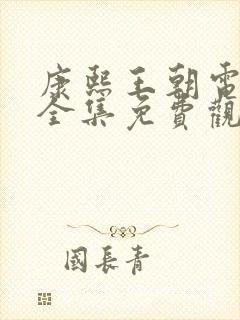 康熙王朝電
全集免費觀
國長青